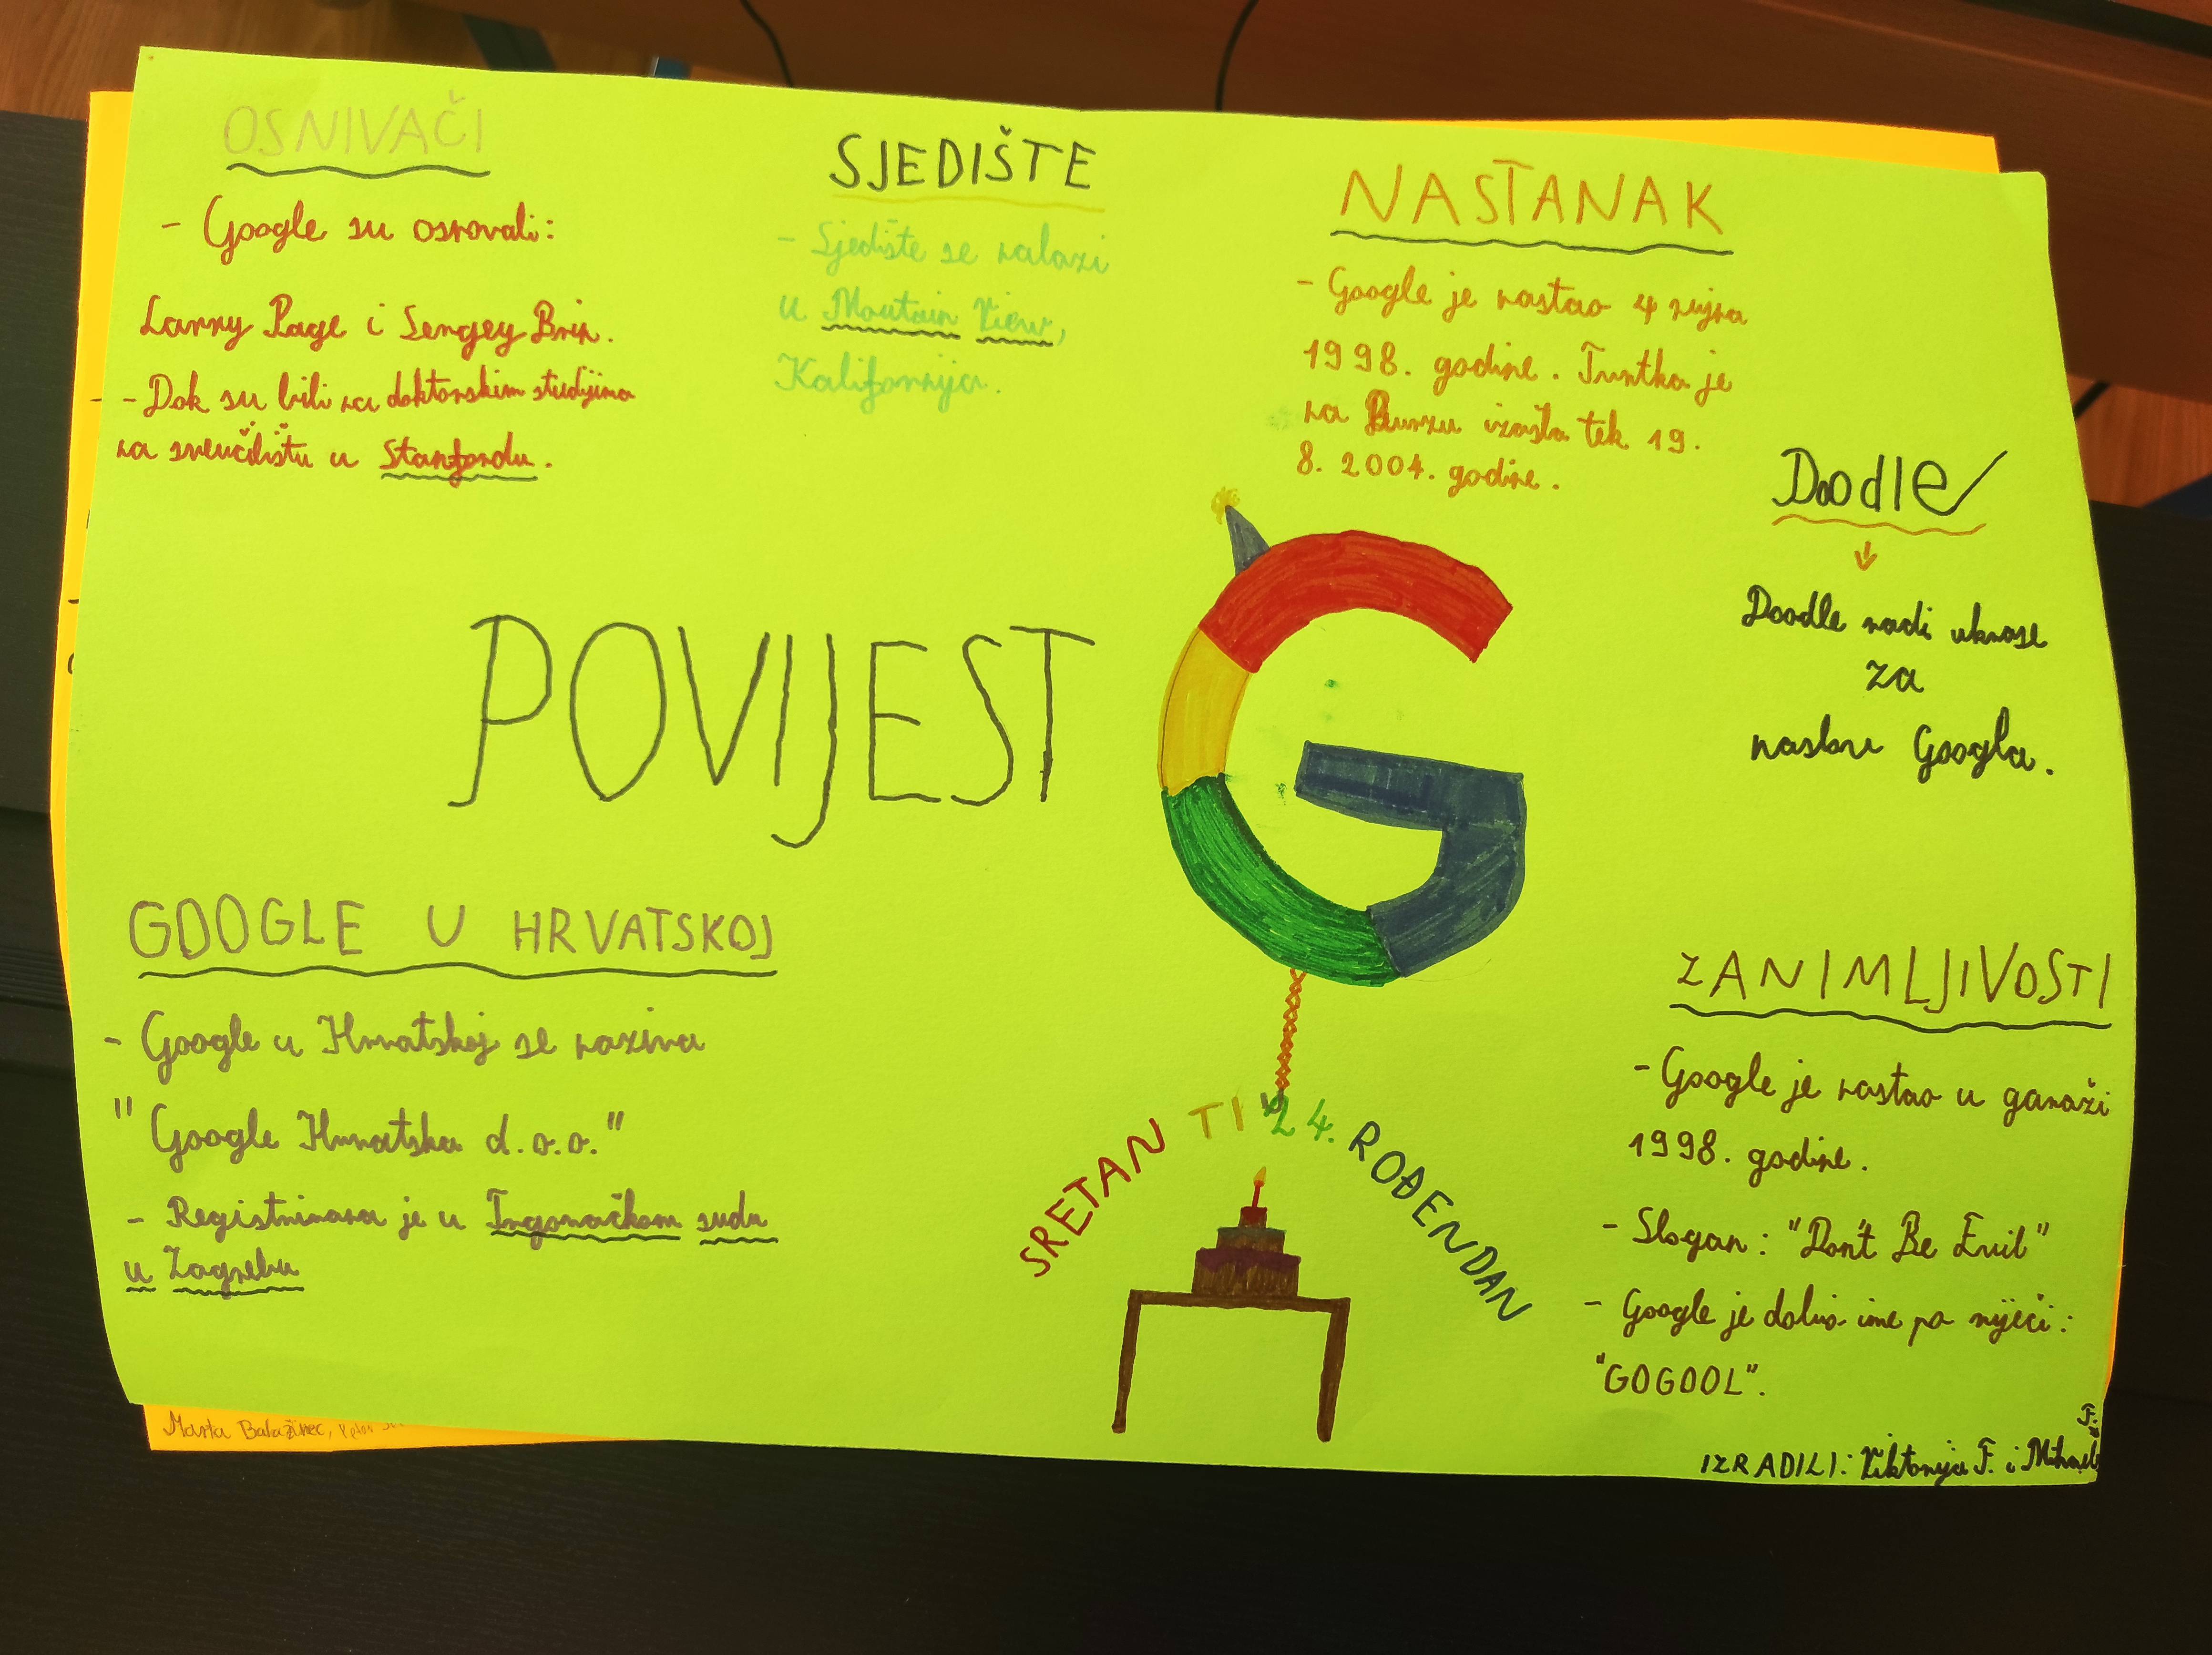 OSNIVAČI
- Google su osnovali:
Larry Page i Sergey Brin.
- Dok su bili na doktorskim studijima
na sveučilištu u Stanfordu.
SJEDIŠTE
- Sjedište se nalazi
u Moutain View,
Kalifornija.
NASTANAK
- Google je nastao 4 rujna
1998. godine. Tvrtka je
na Burzu izašla tek 19.
8. 2004. godine.
Doodle
Doodle radi ukrase
za
naslov Googla.
POVIJEST
GOOGLE U HRVATSKOJ
- Google u Hrvatskoj se naziva
"Google Hrvatska d.o.o."
- Registrirana je u Trgovačkom sudu
u Zagrebu
SRETAN TI 24. ROĐENDAN
ZANIMLJIVOSTI
- Google je nastao u garaži
1998. godine.
- Slogan: "Don't Be Evil"
- Google je dobio ime po riječi:
"GOGOOL".
F.
IZRADILI: Viktorija F. i Mihael
Marta Balažinec,